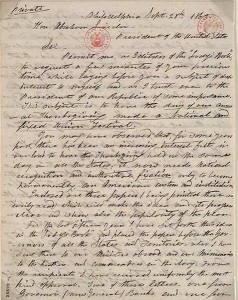 Private
Philadelphia Sept. 28th 1863.
Hon. Abraham Lincoln
President of the United States
Sir
Permit me, as Editress of the "Lady's Book",
to request a few minutes of your precious
time, while laying before you a subject of deep
interest to myself and as I trust even to the
President of our Republic, of some importance.
This subject is to have the day of our annual
Thanksgiving made a National and
fixed Union Festival.
You may have observed that for some years
past, there has been an increasing interest felt in
our land to have the Thanksgiving held on the same
day, in all the States; it now needs National
recognition and authoritive fixation only to become
permanently an American custom and institution.
Enclosed are three papers (being printed these are
easily read) which will make the idea and its progress
clear and show also the popularity of the plan.
For the last years I have set forth this
in the "Lady's Book" and placed the papers before the
Governors of all the States and Territories also I have
sent these to our Ministers abroad and our Missionaries
to the heathen and commanders in the Navy.
the recipients I have received uniformly the most
kind approval. Two of these letters, one from
Governor (now General) Banks and one from